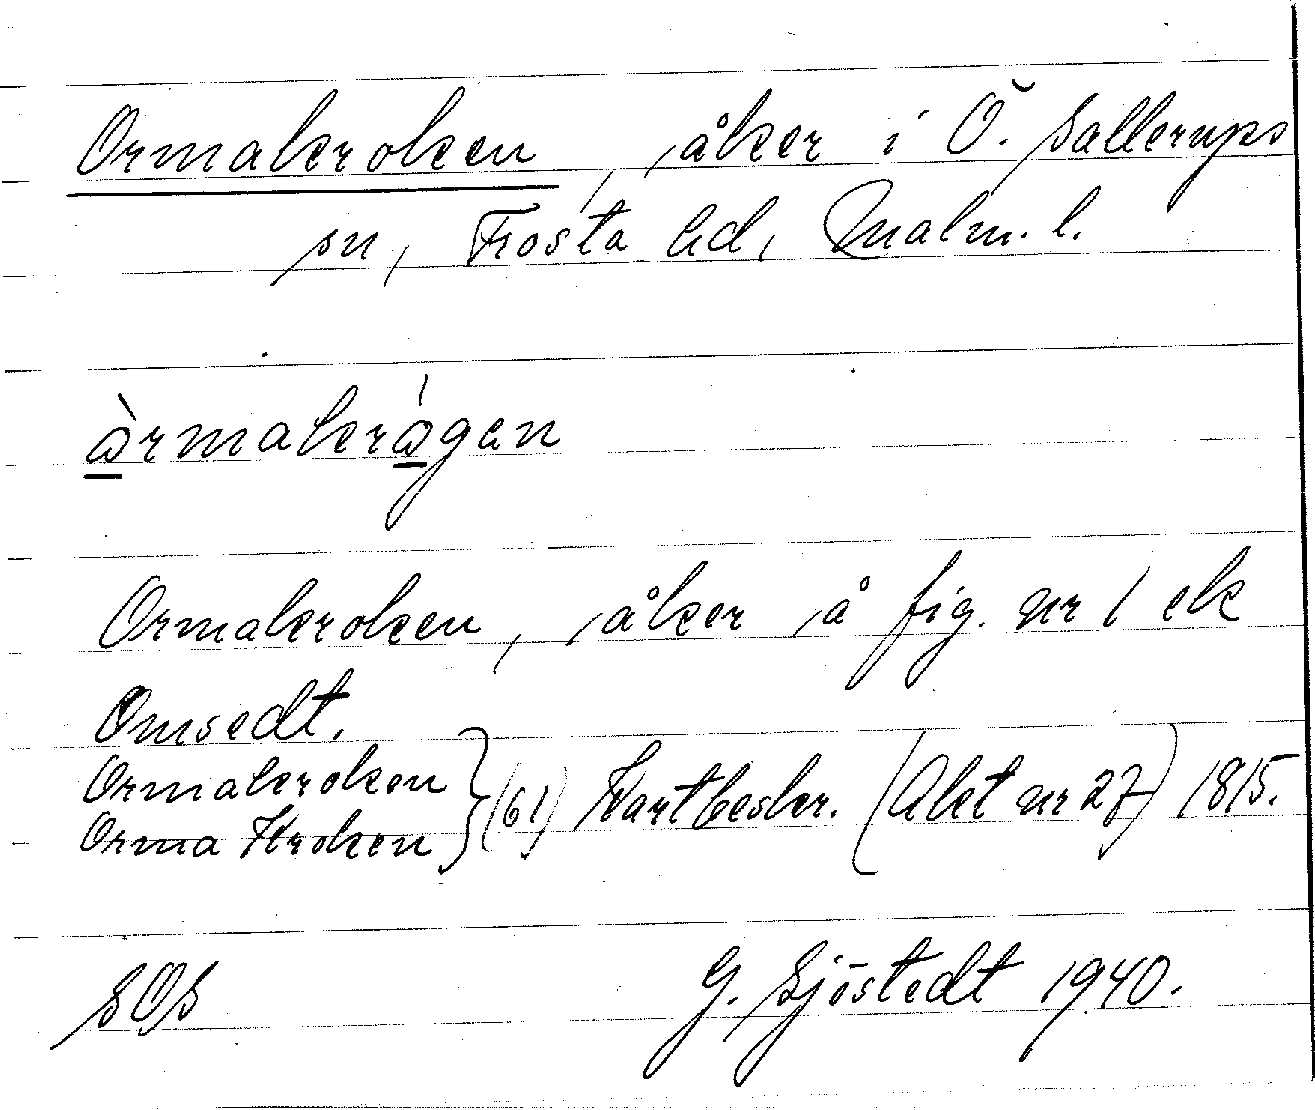 Ormakroken, åker i Ö. Sallerups
sn, Frosta hd, Malm. l.
àrmakrágen
Ormakroken, åker å fig. nr 1 ek
Omsedt.
Ormakroken
Orma Kroken } (61) Kartbeskr. (Akt nr 27) 1815.
SOS
G. Sjöstedt 1940.